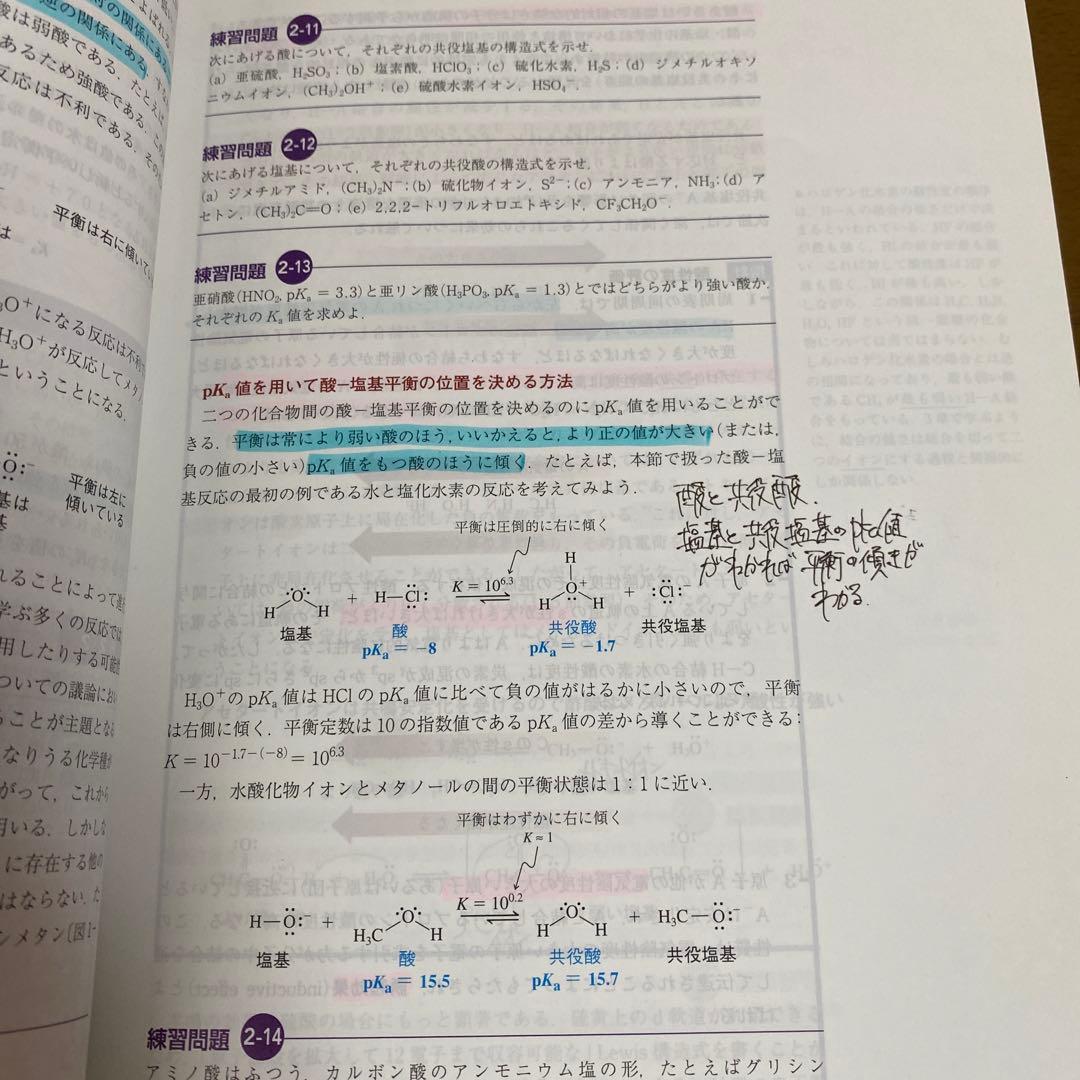 逆の関係にある
酸は弱酸である.たとえば
あるため強酸である.この
反応は不利である.その
平衡は右に傾いてい
H₃O⁺になる反応は不利
H₃O⁺が反応してメタ
ということになる.
平衡は左に
傾いている
れることによって進
学ぶ多くの反応では
用したりする可能性
ついての議論におい
ることが主題となる
なりうる化学種が
がって,これから
用いる.しかしな
に存在する他の
はならない.た
ンメタン(図1-
練習問題 2-11
次にあげる酸について,それぞれの共役塩基の構造式を示せ.
(a) 亜硫酸,H₂SO₃;(b) 塩素酸,HClO₃;(c) 硫化水素,H₂S;(d) ジメチルオキソ
ニウムイオン,(CH₃)₂OH⁺;(e) 硫酸水素イオン,HSO₄⁻.
練習問題 2-12
次にあげる塩基について,それぞれの共役酸の構造式を示せ.
(a) ジメチルアミド,(CH₃)₂N⁻;(b) 硫化物イオン,S²⁻;(c) アンモニア,NH₃;(d) ア
セトン,(CH₃)₂C=O;(e) 2,2,2-トリフルオロエトキシド,CF₃CH₂O⁻.
練習問題 2-13
亜硝酸(HNO₂, pKₐ = 3.3)と亜リン酸(H₃PO₃, pKₐ = 1.3)とではどちらがより強い酸か.
それぞれの Kₐ 値を求めよ.
pKₐ 値を用いて酸-塩基平衡の位置を決める方法
二つの化合物間の酸-塩基平衡の位置を決めるのに pKₐ 値を用いることがで
きる.平衡は常により弱い酸のほう,いいかえると,より正の値が大きい(または,
負の値の小さい)pKₐ 値をもつ酸のほうに傾く.たとえば,本節で扱った酸-塩
基反応の最初の例である水と塩化水素の反応を考えてみよう.
酸と共役酸.
塩基と共役塩基のpKa値
がわかれば平衡の傾きが
わかる.
平衡は圧倒的に右に傾く
H O H + H—Cl K = 10^6.3 H H O⁺ H + :Cl:⁻
塩基 酸 共役酸 共役塩基
pKₐ = −8 pKₐ = −1.7
H₃O⁺の pKₐ 値は HCl の pKₐ 値に比べて負の値がはるかに小さいので,平衡
は右側に傾く.平衡定数は 10 の指数値である pKₐ 値の差から導くことができる:
K = 10^−1.7−(−8) = 10^6.3
一方,水酸化物イオンとメタノールの間の平衡状態は 1:1 に近い.
平衡はわずかに右に傾く
K ≈ 1
H—O:⁻ + H₃C O H K = 10^0.2 H O H + H₃C—O:⁻
塩基 酸 共役酸 共役塩基
pKₐ = 15.5 pKₐ = 15.7
練習問題 2-14
アミノ酸はふつう,カルボン酸のアンモニウム塩の形,たとえばグリシン